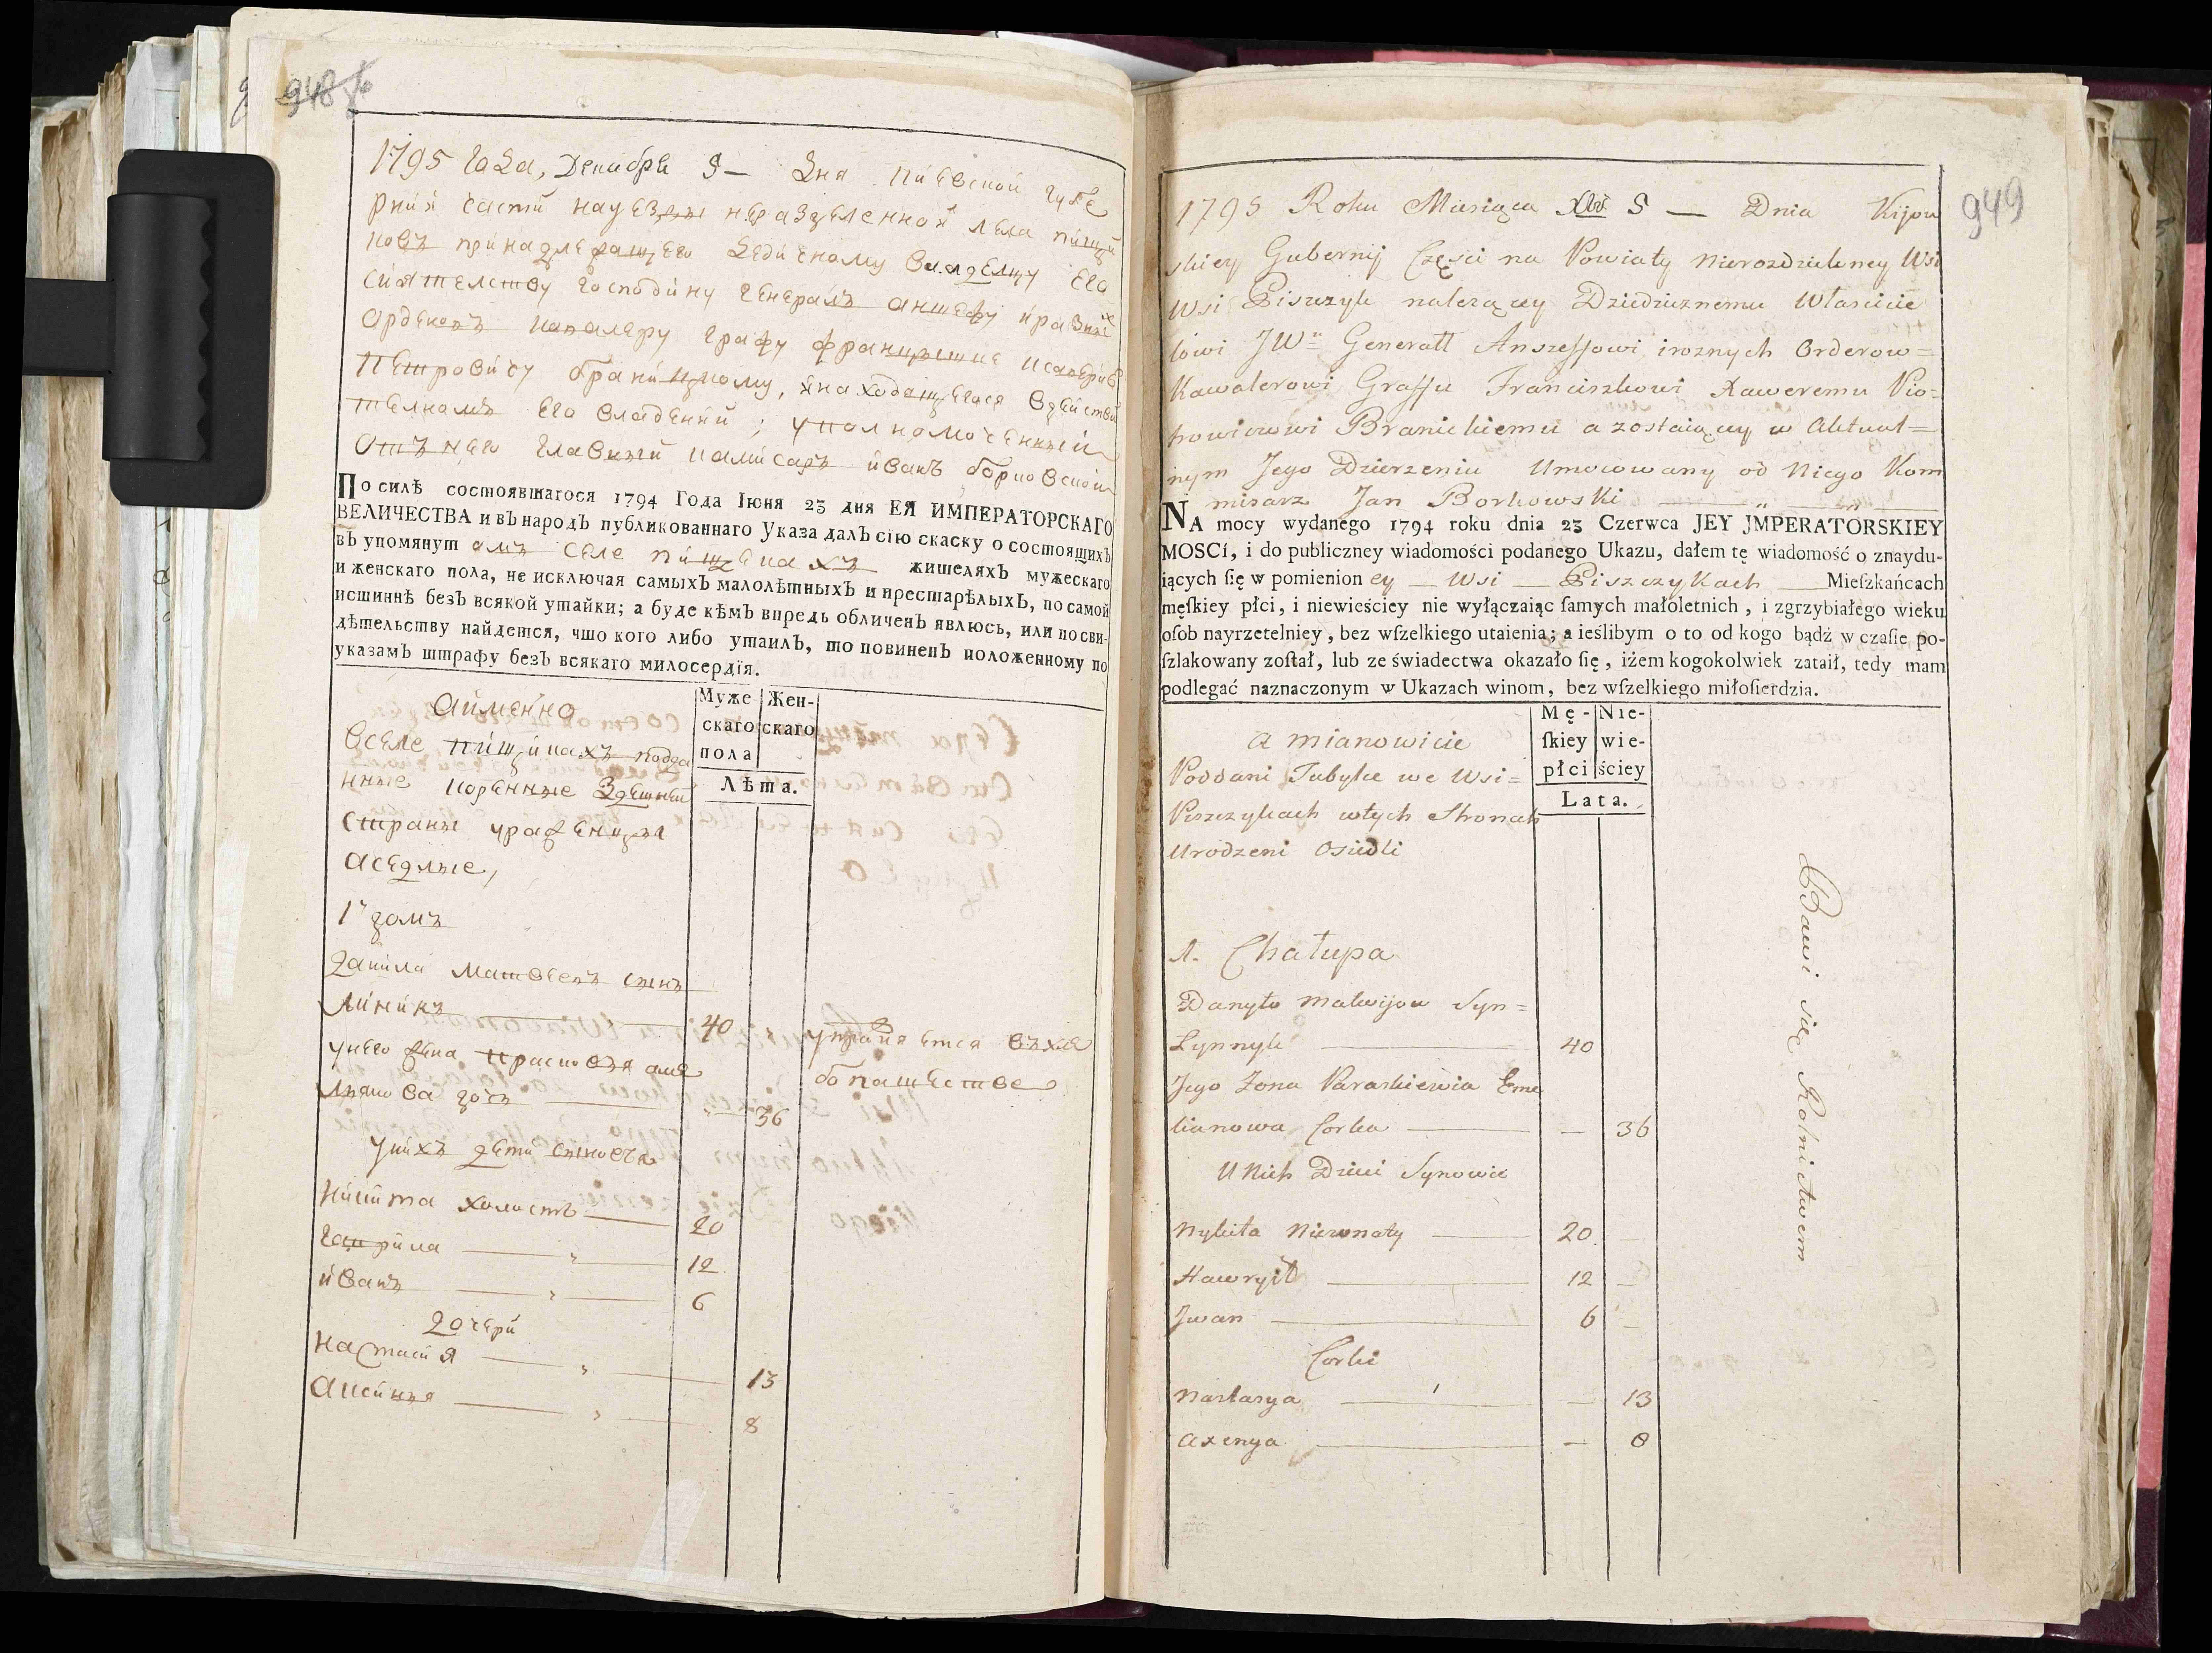 948 об
1795 года, Декабря 5 — дня Киевской губе
рнии части науезды неразделенной села пищи
ковъ принадлежащего дедичному владелцу его
сиятелству господину генералъ аншефу и разныхъ
орденовъ кавалеру графу францишке ксаверию
Петровичу браницкому, инаходящегося вдействи
телномъ его владении; уполномоченный
отъ него главный камисаръ иванъ борковский
По силѣ состоявшагося 1794 Года Іюня 23 дня ЕЯ ИМПЕРАТОРСКАГО
ВЕЛИЧЕСТВА и въ народъ публикованнаго Указа далъ сію скаску о состоящихъ
въ упомянут омъ селе пищикахъ жителяхъ мужескаго
и женскаго пола, не исключая самыхъ малолѣтныхъ и престарѣлыхъ, по самой
истиннѣ безъ всякой утайки; а буде кѣмъ впредь обличенъ явлюсь, или по сви-
дѣтельству найдется, что кого либо утаилъ, то повиненъ положенному по
указамъ штрафу безъ всякаго милосердія.
Муже- Жен-
скаго скаго
пола
Лѣта.
аименно
вселе пищикахъ подда
нные коренные здешней
страны уроженцы
аседлые,
1й домъ
данила матвеевъ сынъ
линникъ 40 упражняется вхле
бопашестве
унего жена прасковя аме
лянова дочь 36
унихъ дети сыновья
никита холостъ 20
гаврила 12
иванъ 6
дочери
настасия 13
аксиния 8
949
1795 Roku Miesiąca Xbr 5 — Dnia Kijow
skiey Gubernij Części na Powiaty nierozdzielney Wsi
Wsi Piszczyk należącey Dziedzicznemu Własicie
lowi JWu Generałł Anszeffowi iroznych Orderow=
Kawalerowi Graffu Franciszkowi Xaweremu Pio=
trowiczowi Branickiemu a zostaiącey w Aktual=
nym Jego Dzierzeniu Umocowany od Niego Kom
misarz Jan Borkowski
NA mocy wydanego 1794 roku dnia 23 Czerwca JEY JMPERATORSKIEY
MOSCi, i do publiczney wiadomości podanego Ukazu, dałem tę wiadomość o znaydu-
iących ſię w pomienion ey — Wsi — Piszczykach — Mieſzkańcach
męſkiey płci, i niewieściey nie wyłączaiąc ſamych małoletnich, i zgrzybiałego wieku
oſob nayrzetelniey, bez wſzelkiego utaienia; a ieślibym o to od kogo bądź w czaſie po-
ſzlakowany zoſtał, lub ze świadectwa okazało ſię, iżem kogokolwiek zataił, tedy mam
podlegać naznaczonym w Ukazach winom, bez wſzelkiego miłoſierdzia.
Mę- Nie-
ſkiey wie-
płci ściey
Lata.
a mianowicie
Poddani Tubylce we Wsi=
Piszczykach wtych Stronach
Urodzeni Osiedli
1. Chałupa
Danyło Matwijow Syn=
Lynnyk 40
Jego Zona Paraskiewia Eme
lianowa Corka — 36
U Nich Dzieci Synowie
Nykita Niezonaty 20 —
Hawryło 12 —
Jwan 6 —
Corki
Nastasya — 13
Axenya — 8
Bawi się Rolnictwem